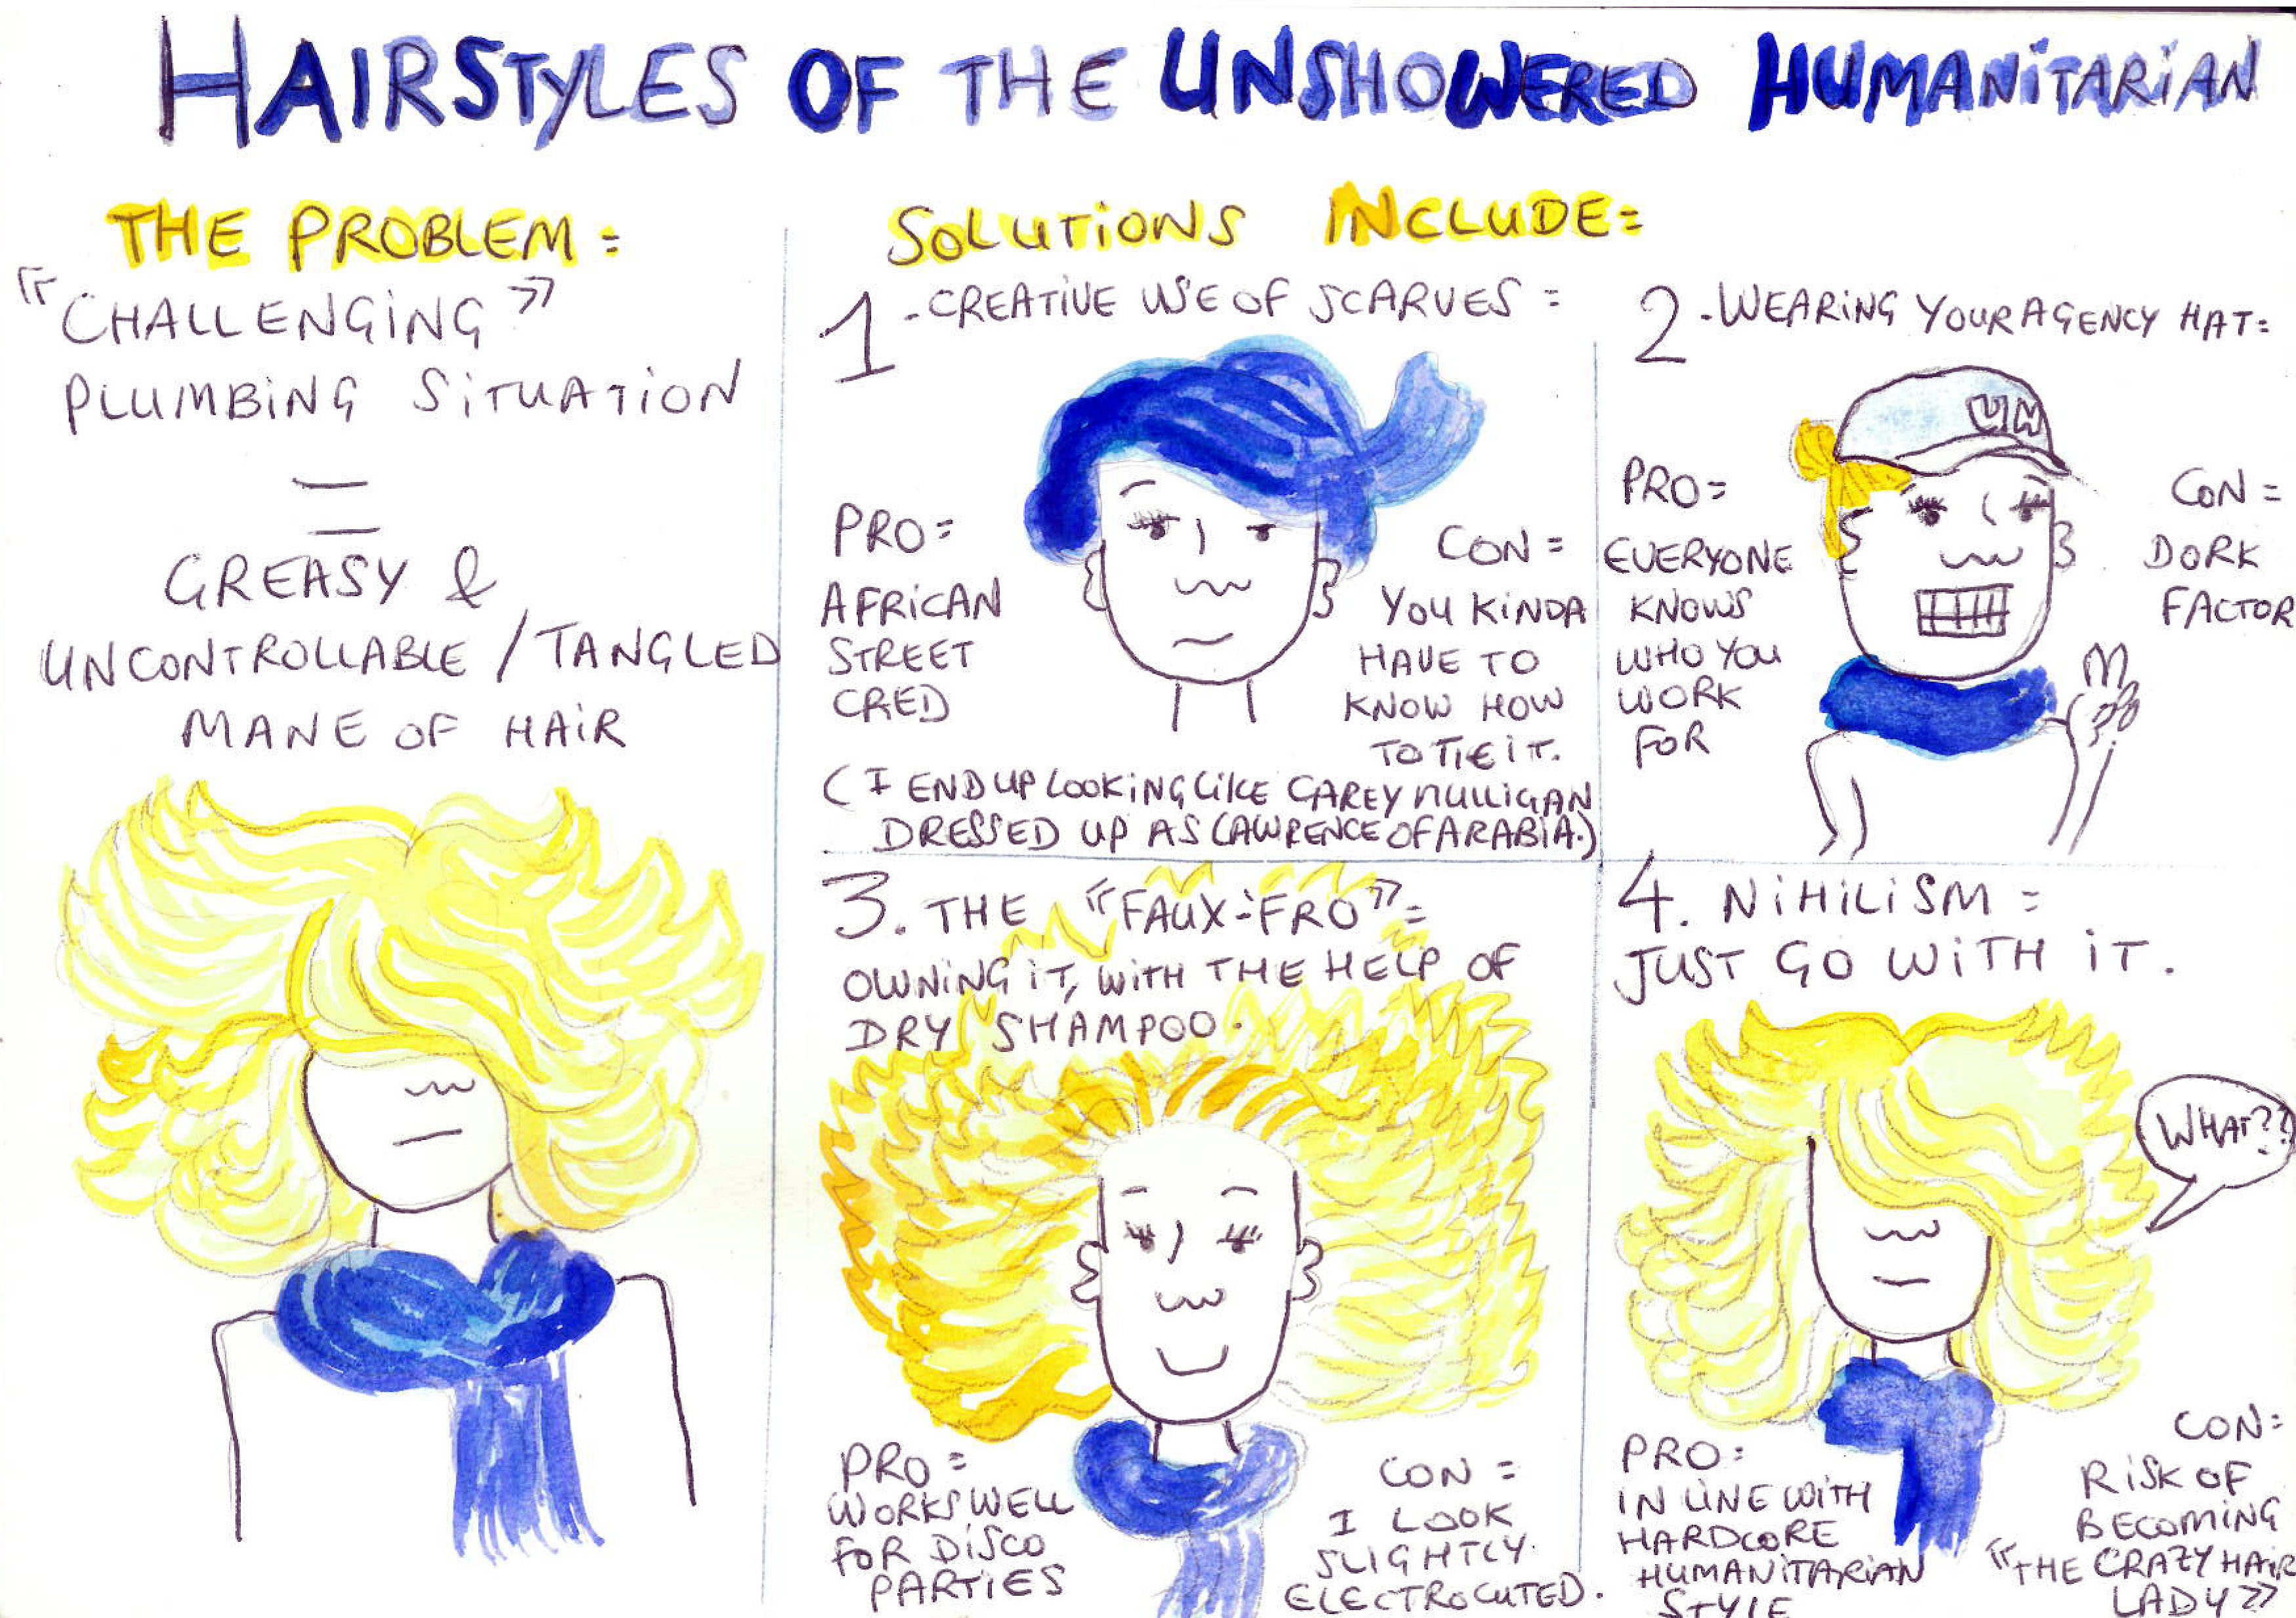 HAIRSTYLES OF THE UNSHOWERED HUMANITARIAN
THE PROBLEM =
"CHALLENGING"
PLUMBING SITUATION
=
GREASY &
UNCONTROLLABLE / TANGLED
MANE OF HAIR
SOLUTIONS INCLUDE=
1-CREATIVE USE OF SCARVES =
PRO=
AFRICAN
STREET
CRED
CON =
YOU KINDA
HAVE TO
KNOW HOW
TO TIE IT.
( I END UP LOOKING LIKE CAREY MULLIGAN
DRESSED UP AS LAWRENCE OF ARABIA.)
2-WEARING YOUR AGENCY HAT=
UN
PRO=
EVERYONE
KNOWS
WHO YOU
WORK
FOR
CON =
DORK
FACTOR
3. THE "FAUX-FRO"=
OWNING IT, WITH THE HELP OF
DRY SHAMPOO.
PRO =
WORKS WELL
FOR DISCO
PARTIES
CON =
I LOOK
SLIGHTLY
ELECTROCUTED.
4. NIHILISM =
JUST GO WITH IT.
WHAT??
PRO=
IN LINE WITH
HARDCORE
HUMANITARIAN
STYLE
CON=
RISK OF
BECOMING
"THE CRAZY HAIR
LADY"